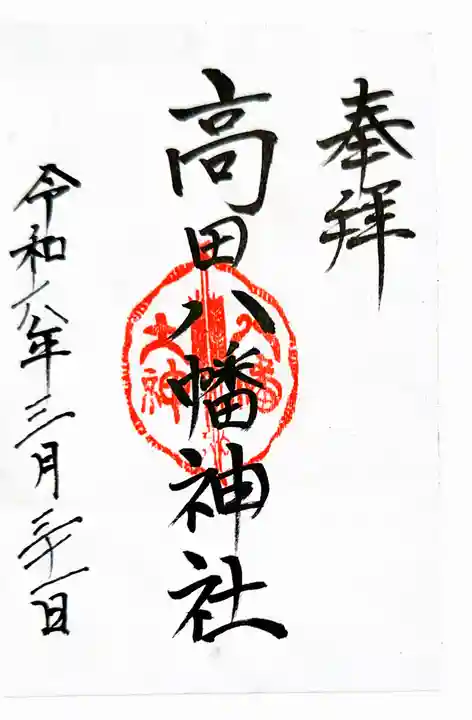 奉拝
高田八幡神社
八幡
大神
令和六年三月三十一日